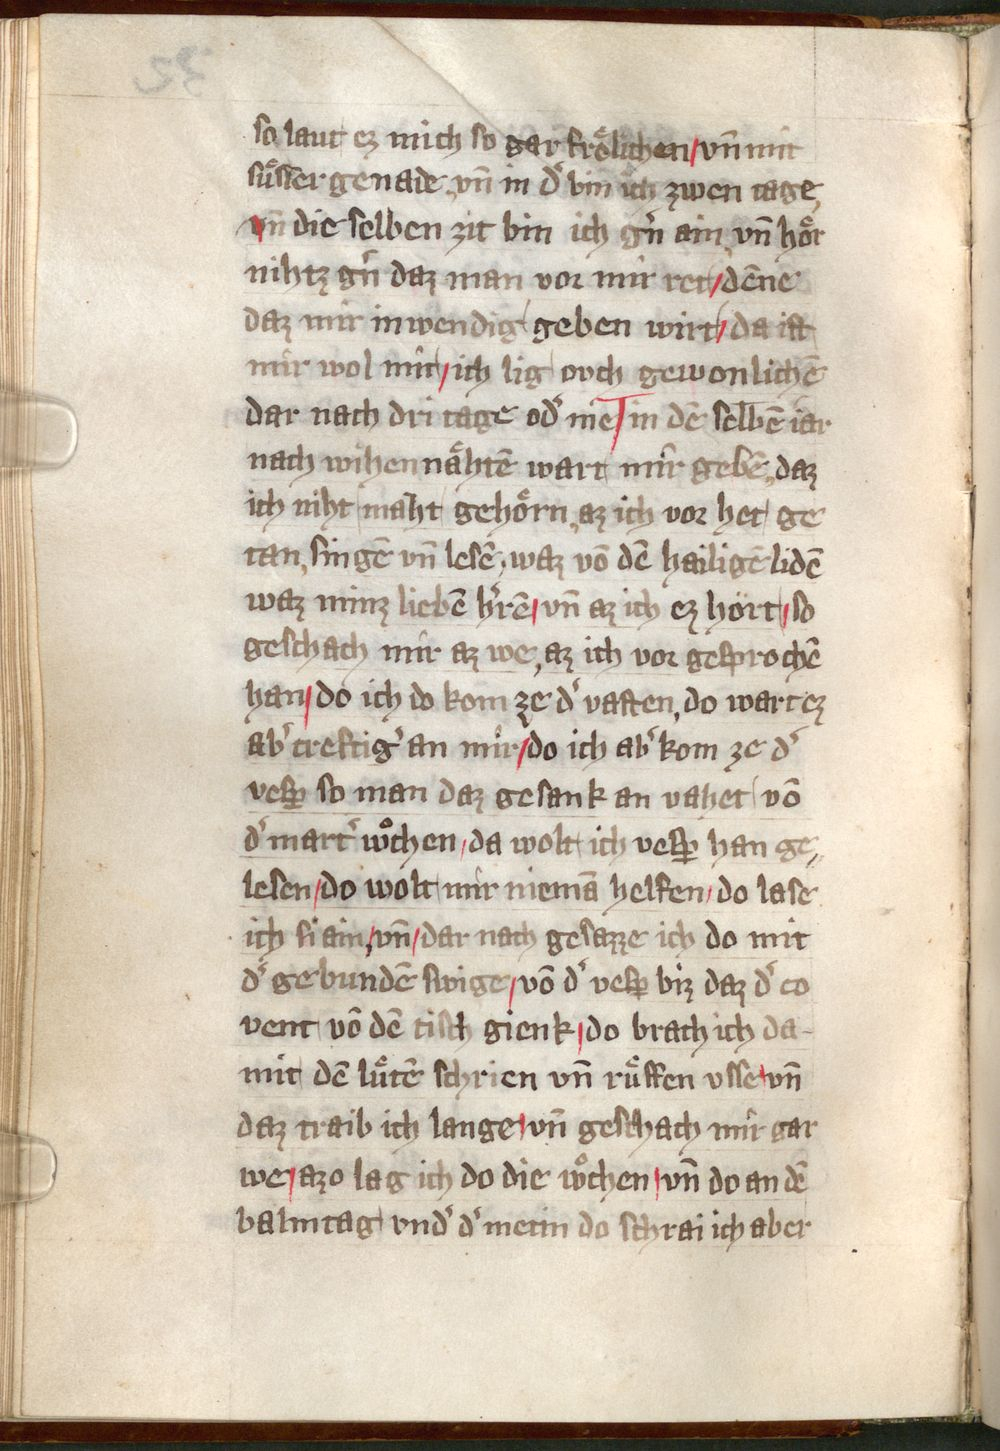 so laut ez mich so gar frölichen / vn̄ mit
süsser genade, vn̄ in dˢ bin ich zwen tage,
vn̄ die selben zit bin ich gˢn ain, vn̄ hör
nihtz gˢn daz man vor mir ret / dēne
daz mir inwendig geben wirt / da ist
mir wol mit / ich lig ovch gewonlichē
dar nach dri tage odˢ mē / in dē selbē iar
nach wihennähtē wart mir gebē, daz
ich niht maht gehörn, az ich vor het ge
tan, singē vn̄ lesē, waz vō dē hailigē lidē
waz minz liebē hˢrē / vn̄ az ich ez hört / so
geschach mir az we, az ich vor gesprochē
han / do ich do kom ze dˢ vasten, do wart ez
abˢ creftigˢ an mir / do ich abˢ kom ze dˢ
vesꝑ so man daz gesank an vahet vō
dˢ martˢ wͦchen / da wolt ich vesꝑ han ge⸗
lesen / do wolt mir niemā helfen / do lase
ich si ain / vn̄ / dar nach gesazze ich do mit
dˢ gebundē swige / vō dˢ vesꝑ biz daz dˢ co
vent vō dē tisch gienk / do brach ich da-
mit dē lütē schrien vn̄ rüffen vsse / vn̄
daz traib ich lange / vn̄ geschach mir gar
we / azo lag ich do die wͦchen / vn̄ do an dē
balmtag vndˢ dˢ metin do schrai ich aber